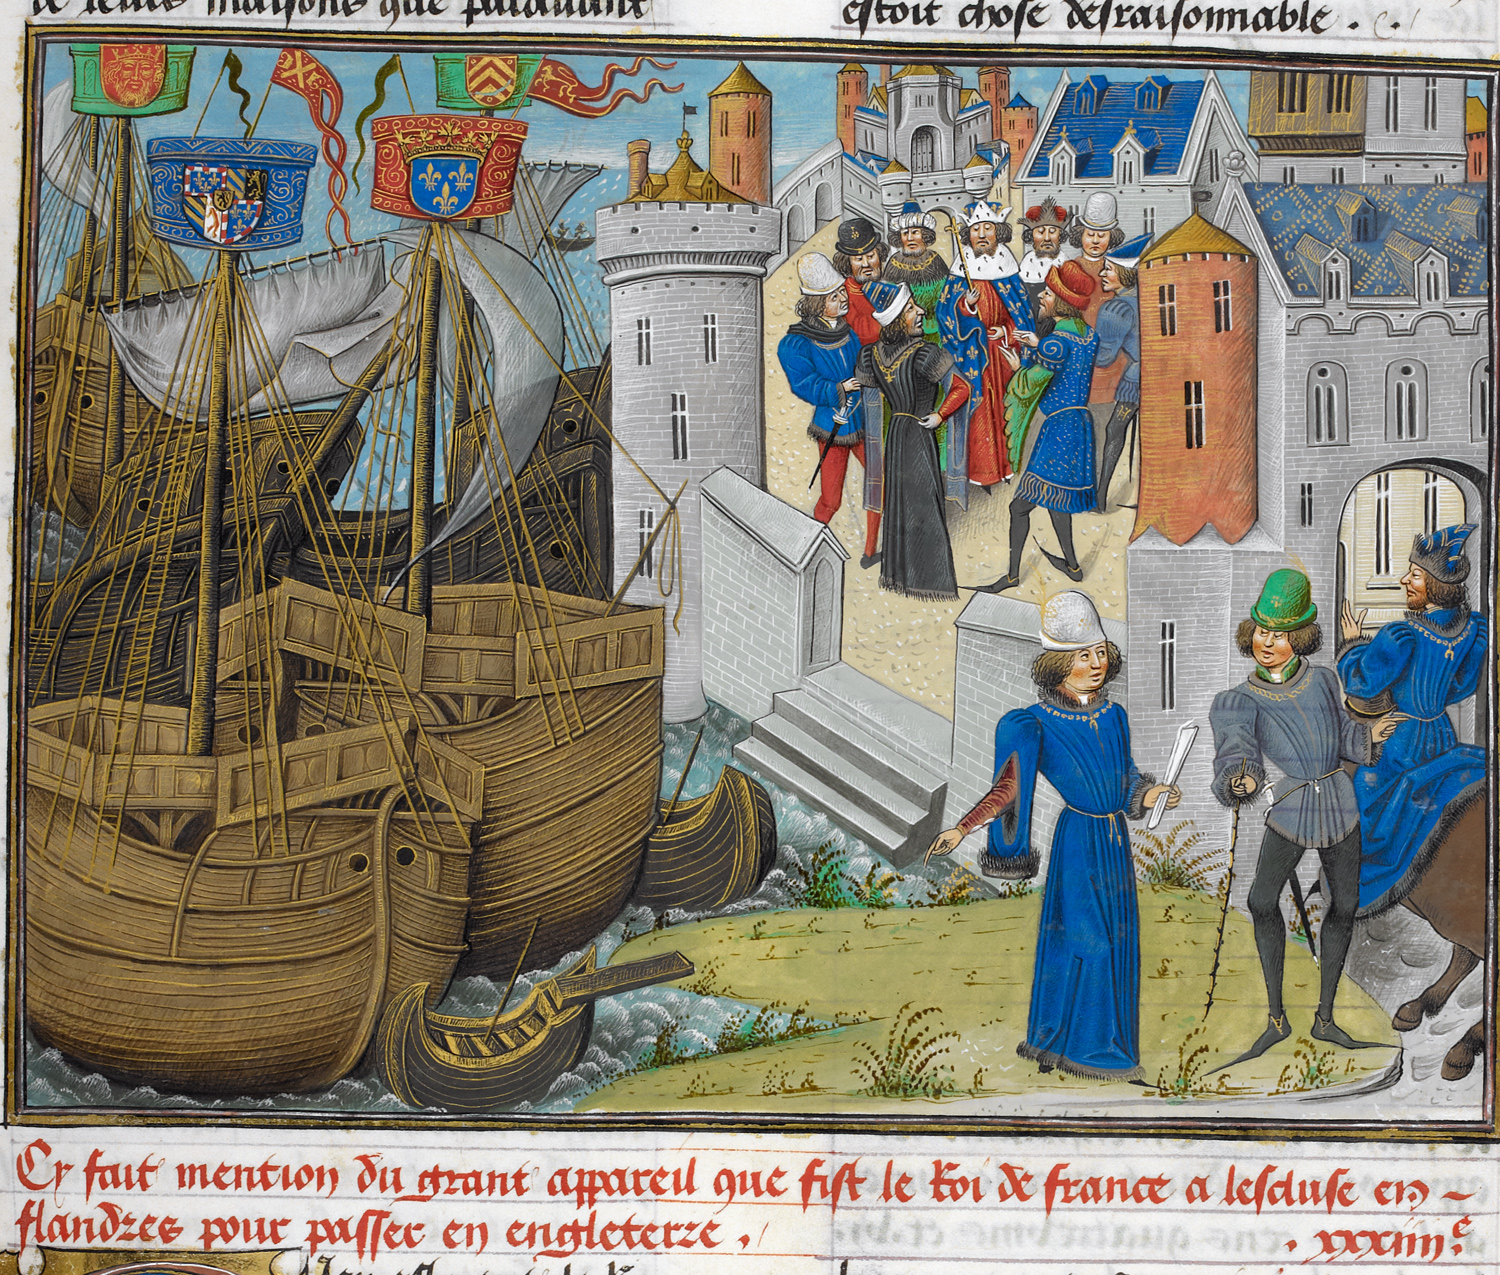 de leurs maisons que parauant
estoit chose desraisonnable .
Cy fait mention du grant appareil que fist le Roi de france a lescluse en -
flandres pour passer en engleterre . . xxxiiii.e